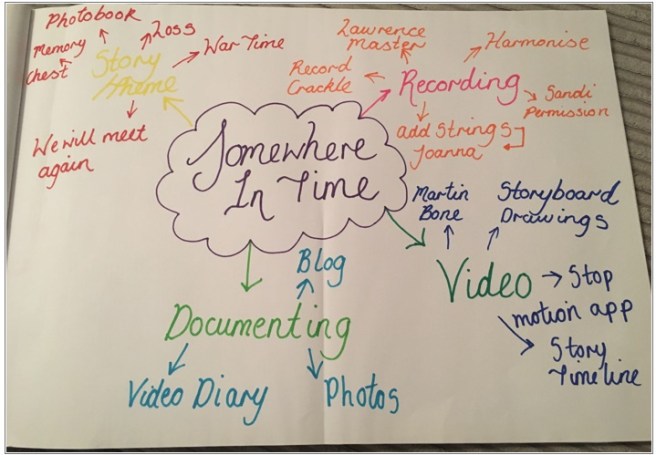 Photobook
Memory
Chest
Loss
War Time
Story
theme
We will meet
again
Lawrence
Master
Record
Crackle
Harmonise
Recording
Sandi
Permission
add Strings
Joanna
Somewhere
In Time
Martin
Bone
Storyboard
Drawings
Video
Stop
motion app
Story
Timeline
Blog
Documenting
Video Diary
Photos